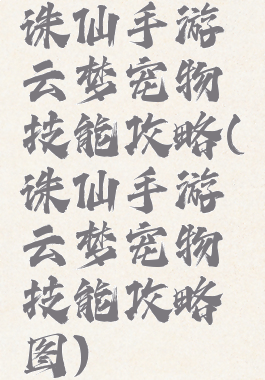 诛仙手游
云梦宠物
技能攻略(
诛仙手游
云梦宠物
技能攻略
图)